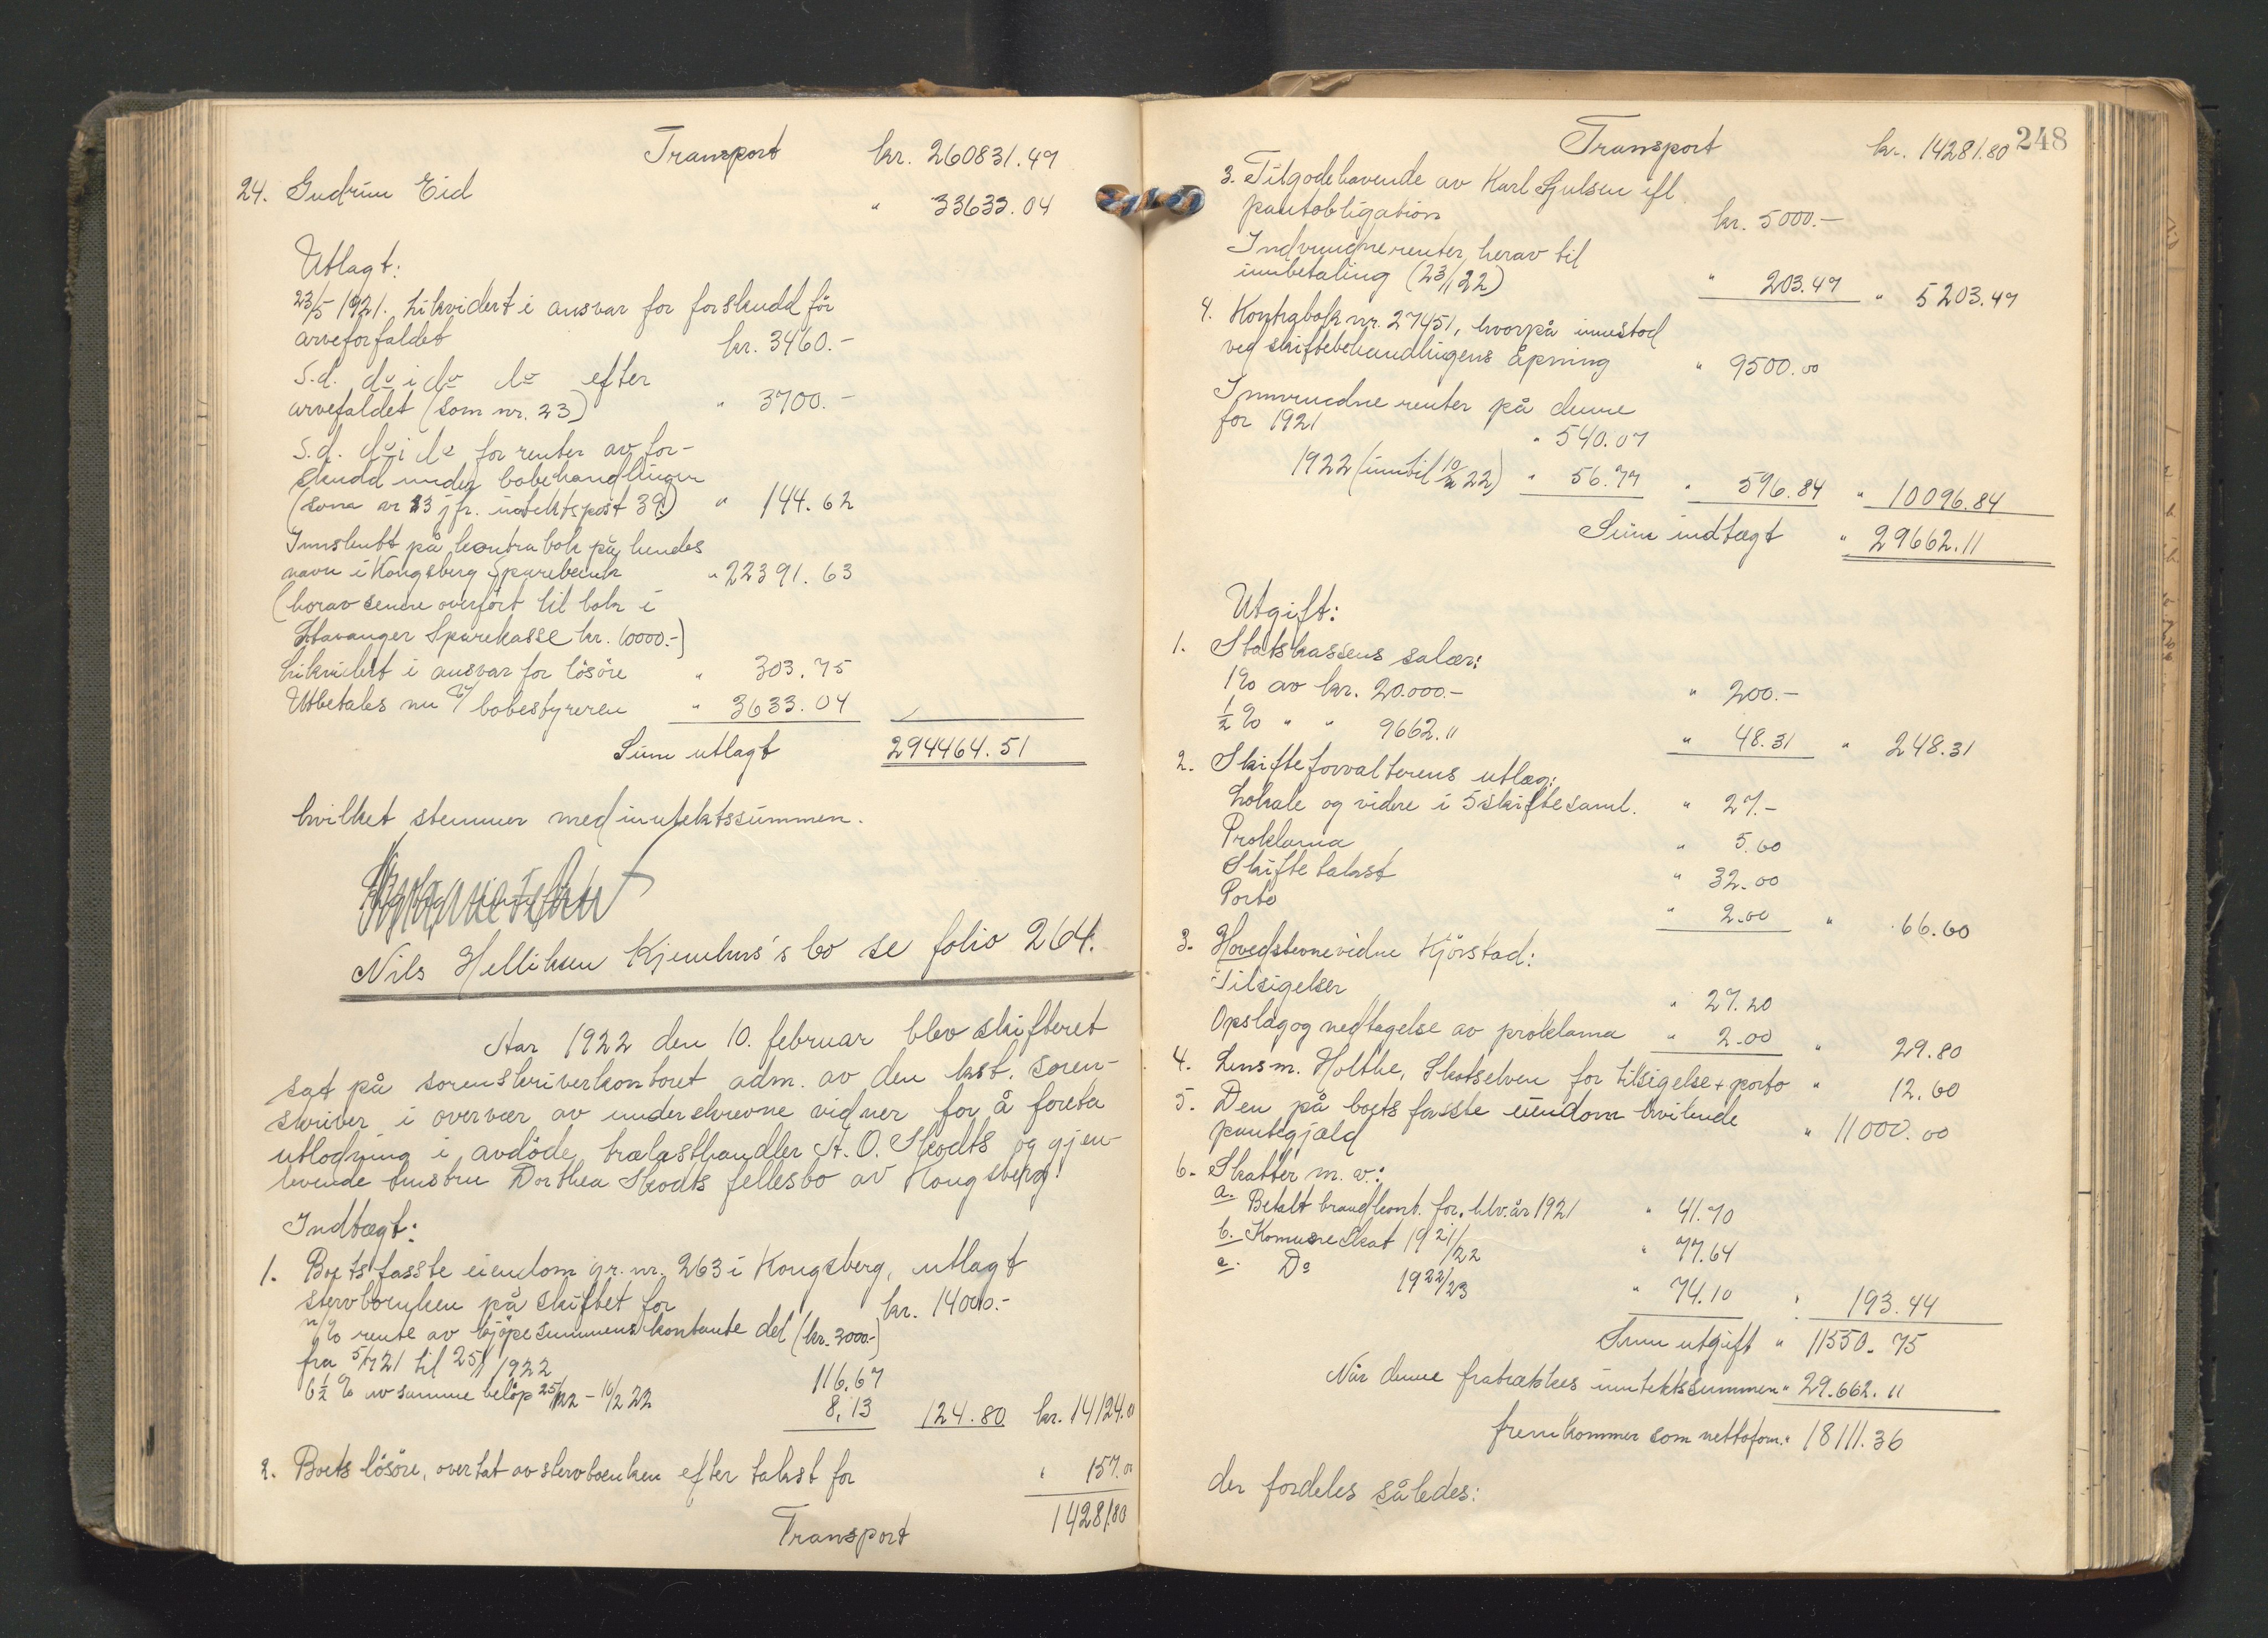 Transport kr. 260831.47
24. Gudrun Eid " 33633.04
Utlagt:
23/5 1921. Likvidert i ansvar for forskudd før
arveforfaldet kr. 3460.-
S.d. do i do do efter
arvefaldet (som nr. 23) " 3700.-
S.d. do i do for renter av for-
skudd under bobehandlingen
(som nr 23 jfr. inntektspost 39) " 144.62
Innskutt på kontrabok på hendes
navn i Kongsberg Sparebank " 22391.63
(horav senere overført til bok i
Stavanger Sparekasse kr. 10000.-)
Likvidert i ansvar for løsøre " 303.75
Utbetales nu v/ bobestyreren " 3633.04
Sum utlagt 294464.51
hvilket stemmer med inntektssummen.
Nils Helliksen Kjemhus's bo se folio 264.
Aar 1922 den 10. februar blev skifteret
sat på sorenskriverkontoret adm. av den kst. soren-
skriver i overvær av underskrevne vidner for å foreta
utlodning i avdøde trælasthandler A. O. Skodts og gjen-
levende hustru Dorthea Skodts fellesbo av Kongsberg!
Indtægt:
1. Boets faste eiendom gr. nr. 263 i Kongsberg, utlagt
stervboenken på skiftet for kr. 14000.-
7% rente av kjøpesummens kontante del (kr. 3000.-)
fra 5/7 21 til 25/1 1922 116.67
6½% av samme beløp 25/1 22 - 10/2 22 8.13 124.80 kr. 14124.80
2. Boets løsøre, overtat av stervboenken efter takst for " 157.00
Transport 14281.80
248
Transport kr. 14281.80
3. Tilgodehavende av Karl Gulsen ifl.
pantobligation kr. 5000.-
Indvundne renter herav til
innbetaling (23/1 22) " 203.47 " 5203.47
4. Kontrabok nr. 27451, hvorpå innestod
ved skiftebehandlingens åpning " 9500.00
Innvundne renter på denne
for 1921 " 540.07
1922 (inntil 10/2 22) " 56.77 " 596.84 " 10096.84
Sum indtægt " 29662.11
Utgift:
1. Statskassens salær:
1% av kr. 20.000.- " 200.-
½% " " 9662.11 " 48.31 " 248.31
2. Skifteforvalterens utlæg:
Lokale og videre i 5 skiftesaml. " 27.-
Proklama " 5.60
Skiftetakst " 32.00
Porto " 2.00 " 66.60
3. Hovedstevnevidne Kjørstad:
Tilsigelser " 27.20
Opslag og nedtagelse av proklama " 2.00 " 29.80
4. Lensm. Holthe, Skotselven for tilsigelse + porto " 12.60
5. Den på boets faste eiendom hvilende
pantegjæld " 11000.00
6. Skatter m. v.:
a. Betalt brandkont. for. hlv. år 1921 " 41.70
b. Komuneskat 1921/22 " 77.64
c. Do 1922/23 " 74.10 " 193.44
Sum utgift " 11550.75
Når denne fratrækkes inntektssummen " 29.662.11
fremkommer som nettoform. " 18111.36
der fordeles således: